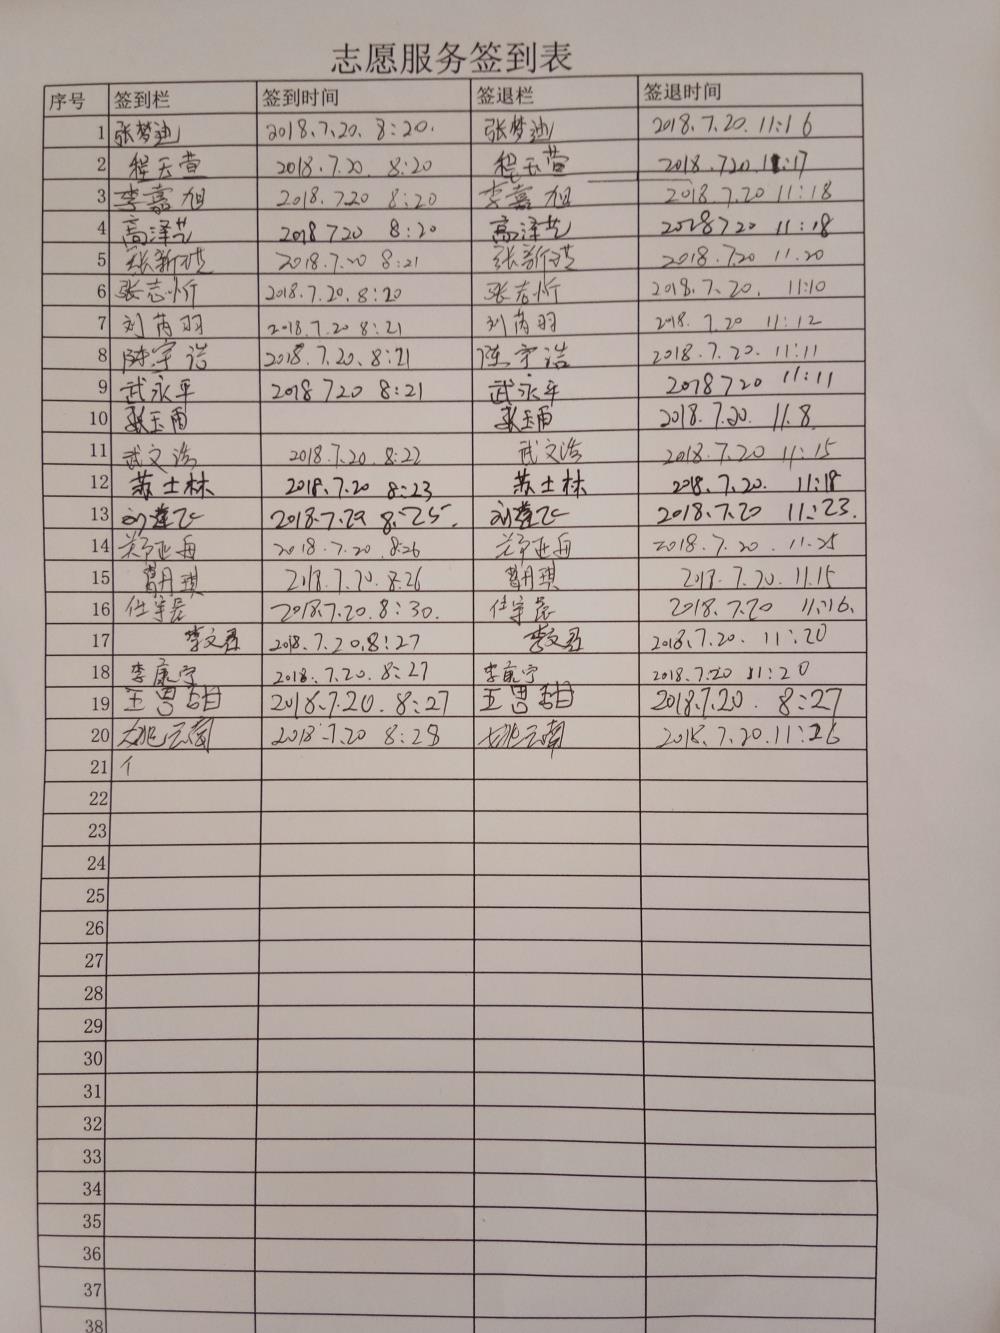 志愿服务签到表
序号 签到栏 签到时间 签退栏 签退时间
1 张梦迪 2018.7.20. 8:20. 张梦迪 2018.7.20. 11:16
2 程玉萱 2018.7.20. 8:20 程玉萱 2018.720.11:17
3 李嘉旭 2018.720 8:20 李嘉旭 2018.7.20 11:18
4 高泽艺 2018 720 8:20 高泽艺 2018720 11:18
5 2018.7.20 8:21 2018.7.20 11.20
6 张志忻 2018.7.20.8:20 张志忻 2018.7.20. 11:10
7 刘芮羽 2018.7.20 8:21 刘芮羽 2018.7.20 11:12
8 陈宇浩 2018.7.20.8:21 陈宇浩 2018.7.20. 11:11
9 武永平 2018 720 8:21 武永平 2018720 11:11
10 张玉雨 张玉雨 2018.7.20. 11.8.
11 武文浩 2018.7.20.8:22 武文浩 2018.7.20 11:15
12 苏士林 2018.7.20 8:23 苏士林 2018.7.20. 11:18
13 2018.7.20 8:25. 2018.7.20 11:23.
14 2018.7.20.8:26 2018.7.20.11.25
15 曹丹琪 2018.7.20.8:26 曹丹琪 2018.7.20.11.15
16 任宇晨 2018.7.20.8:30. 任宇晨 2018.7.20 11:16.
17 李文君 2018.7.20.8:27 李文君 2018.7.20. 11:20
18 李康宁 2018.7.20.8:27 李康宁 2018.7.20 11:20
19 王思甜 2018.7.20. 8:27 王思甜 2018.7.20. 8:27
20 姚云南 2018.7.20 8:28 姚云南 2018.7.20.11:26
21
22
23
24
25
26
27
28
29
30
31
32
33
34
35
36
37
38